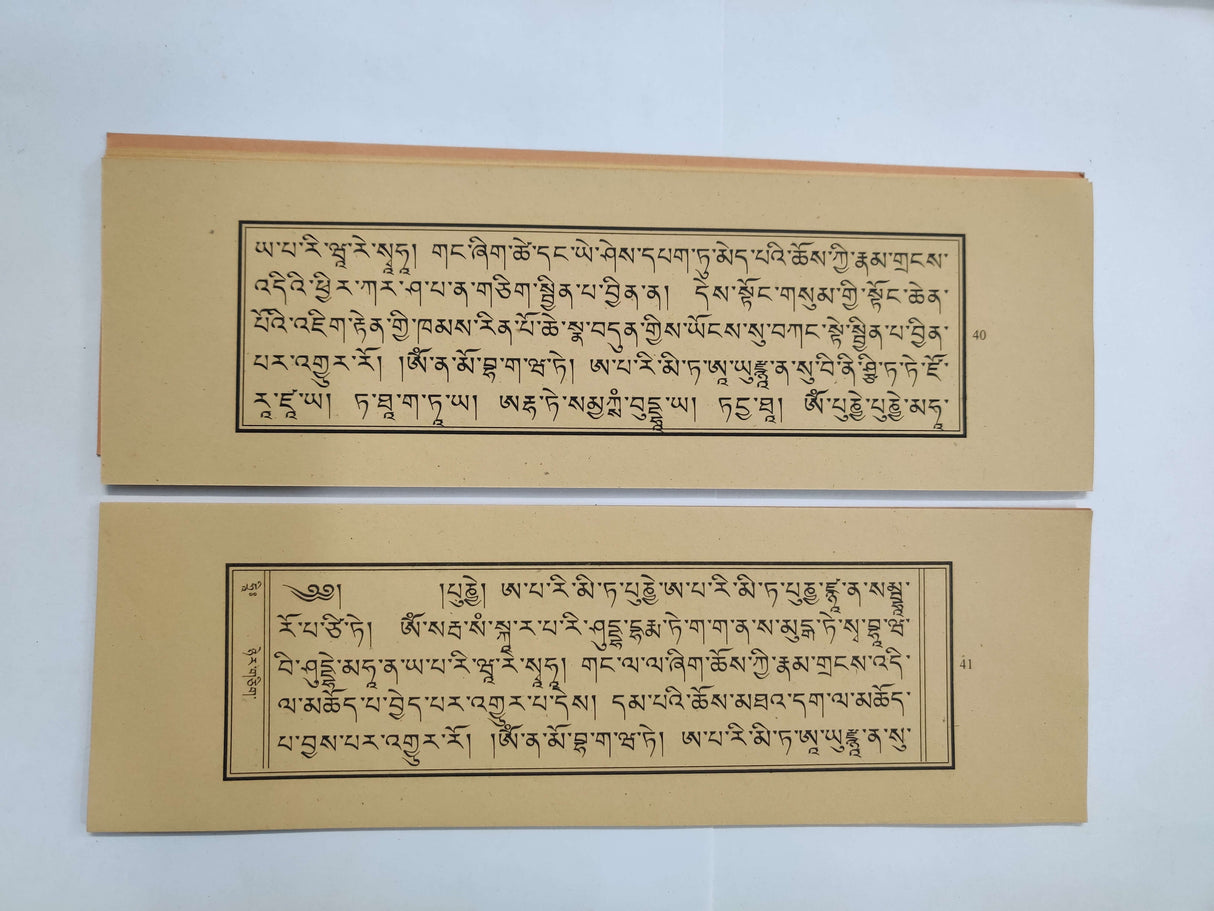 ཡ་པ་རི་ཝཱ་རེ་སྭཱ་ཧཱ། གང་ཞིག་ཚེ་དང་ཡེ་ཤེས་དཔག་ཏུ་མེད་པའི་ཆོས་ཀྱི་རྣམ་གྲངས་
འདིའི་ཕྱིར་ཀར་ཤ་པ་ན་གཅིག་སྦྱིན་པ་བྱིན་ན། དེས་སྟོང་གསུམ་གྱི་སྟོང་ཆེན་
པོའི་འཇིག་རྟེན་གྱི་ཁམས་རིན་པོ་ཆེ་སྣ་བདུན་གྱིས་ཡོངས་སུ་བཀང་སྟེ་སྦྱིན་པ་བྱིན་
པར་འགྱུར་རོ། །ༀ་ན་མོ་བྷ་ག་ཝ་ཏེ། ཨ་པ་རི་མི་ཏ་ཨཱ་ཡུརྫྙཱ་ན་སུ་བི་ནི་ཤྩི་ཏ་ཏེ་ཛོ་
རཱ་ཛཱ་ཡ། ཏ་ཐཱ་ག་ཏཱ་ཡ། ཨརྷ་ཏེ་སམྱཀྶཾ་བུདྡྷཱ་ཡ། ཏདྱ་ཐཱ། ༀ་པུཎྱེ་པུཎྱེ་མཧཱ་
40
༄༅། །པུཎྱེ། ཨ་པ་རི་མི་ཏ་པུཎྱེ་ཨ་པ་རི་མི་ཏ་པུཎྱ་ཛྙཱ་ན་སམྦྷཱ་
རོ་པ་ཙི་ཏེ། ༀ་སརྦ་སཾ་སྐཱ་ར་པ་རི་ཤུདྡྷ་དྷརྨ་ཏེ་ག་ག་ན་ས་མུདྒ་ཏེ་སྭ་བྷཱ་ཝ་
བི་ཤུདྡྷེ་མཧཱ་ན་ཡ་པ་རི་ཝཱ་རེ་སྭཱ་ཧཱ། གང་ལ་ལ་ཞིག་ཆོས་ཀྱི་རྣམ་གྲངས་འདི་
ལ་མཆོད་པ་བྱེད་པར་འགྱུར་པ་དེས། དམ་པའི་ཆོས་མཐའ་དག་ལ་མཆོད་
པ་བྱས་པར་འགྱུར་རོ། །ༀ་ན་མོ་བྷ་ག་ཝ་ཏེ། ཨ་པ་རི་མི་ཏ་ཨཱ་ཡུརྫྙཱ་ན་སུ་
ཉེར་གཅིག
41